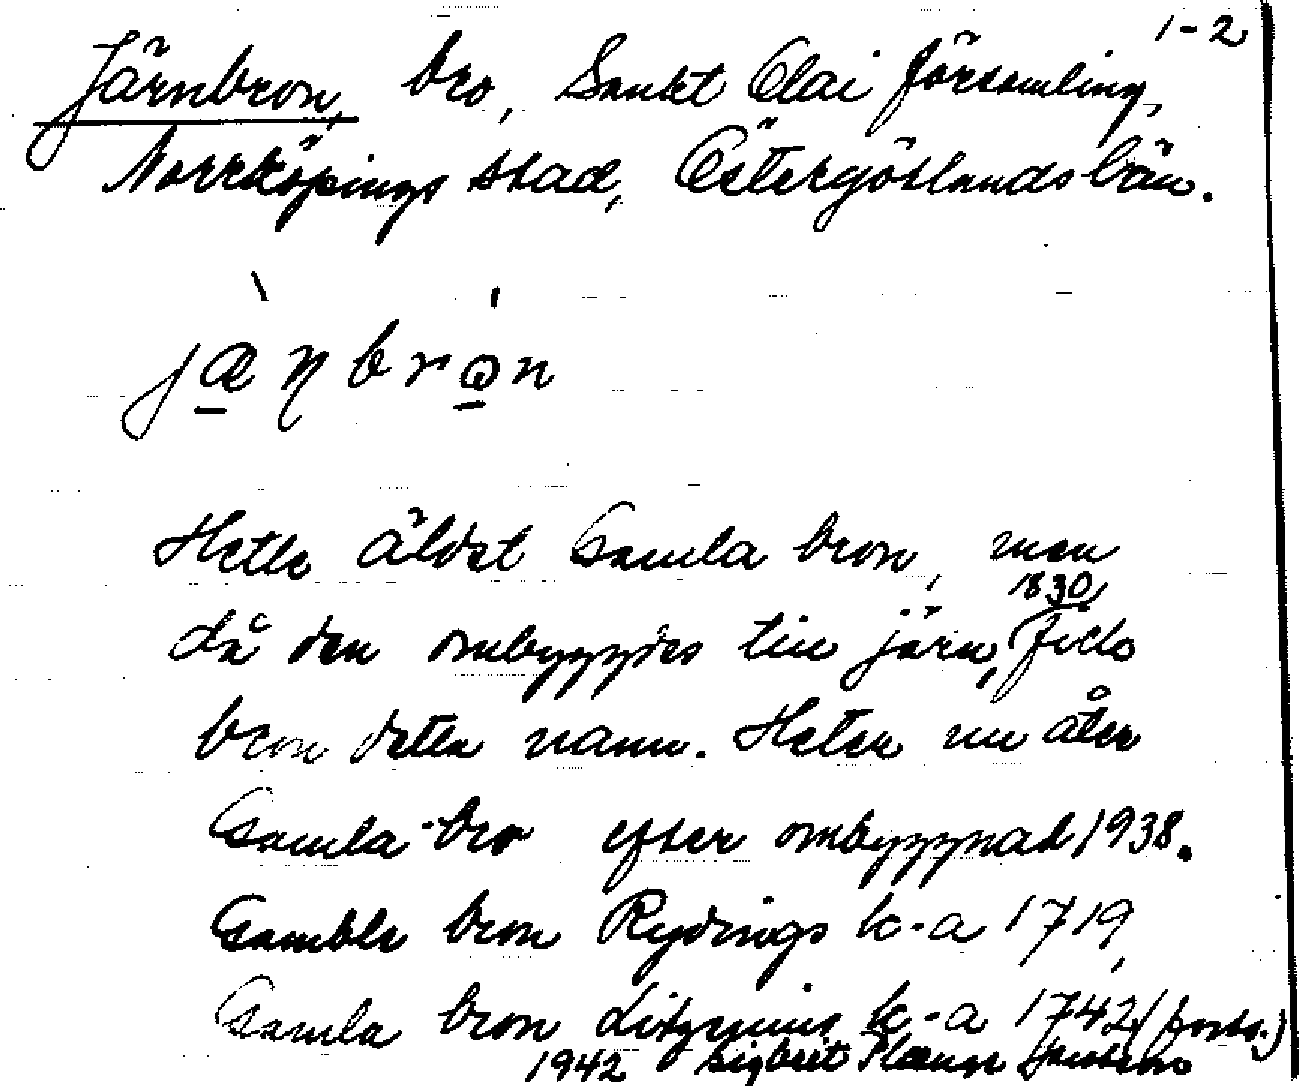 1-2
Järnbron, bro, Sankt Olai församling,
Norrköpings stad, Östergötlands län.
jæ̠̀ŋbrɷ̠́n
Hette äldst Gamla bron, men
1830
då den ombyggdes till järn, fick
bron detta namn. Heter nu åter
Gamla-bro efter ombyggnad 1938.
Gamble bron Rydings k-a 1719,
Gamla bron k-a 1742 (forts.)
1942 Sigbrit